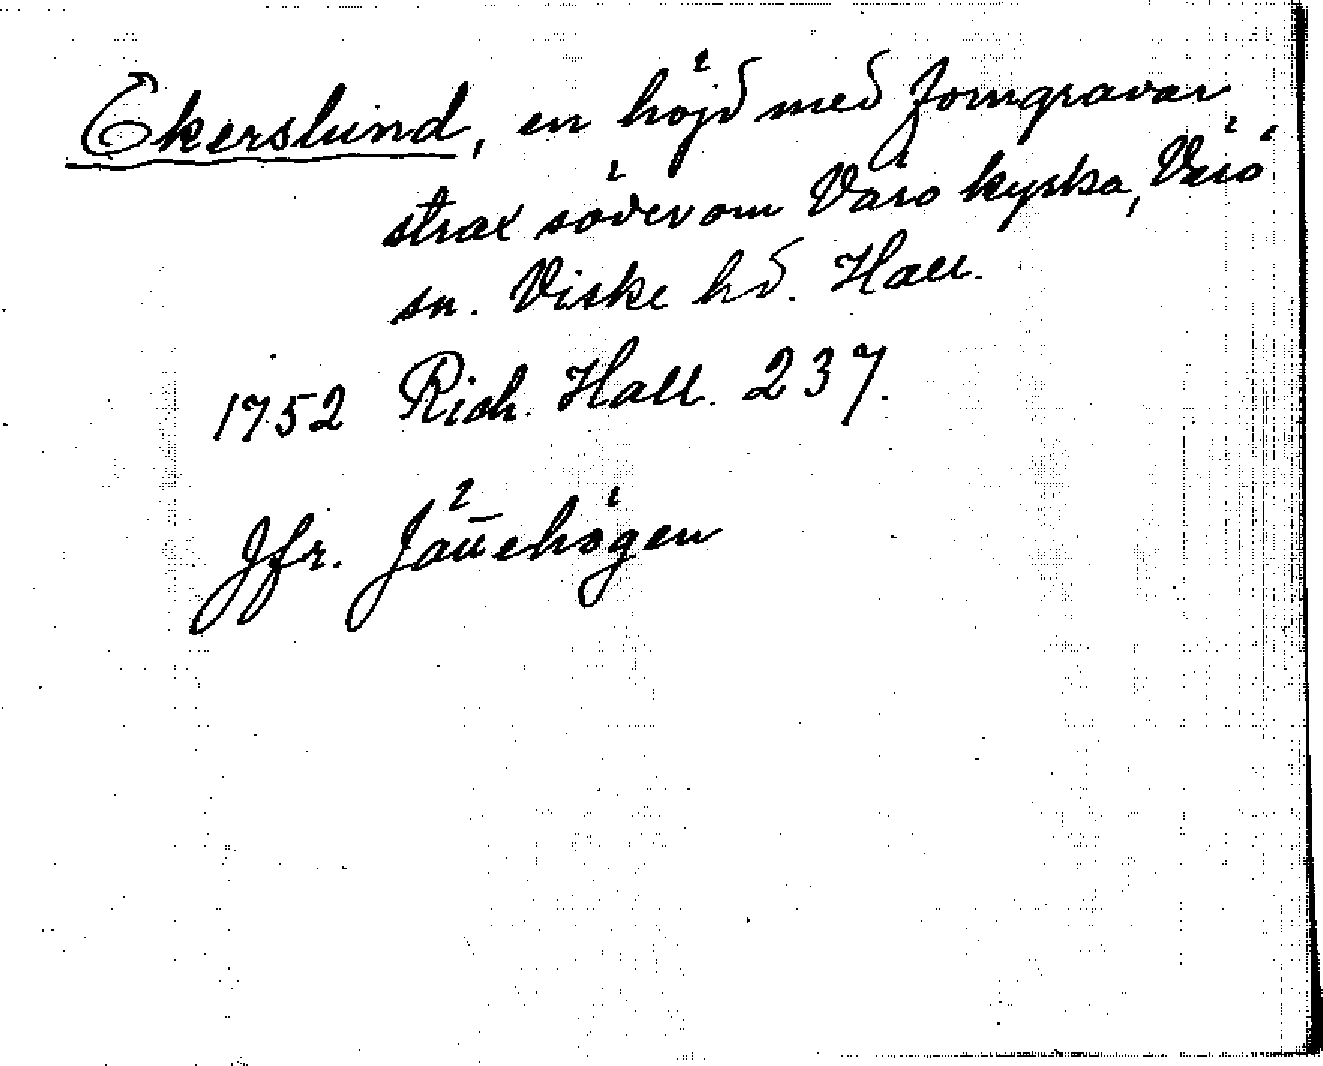 Ekerslund, en höjd med forngravar
strax söder om Värö kyrka, Värö
sn. Viske hd. Hall.
1752 Rich. Hall. 237.
Jfr. Jättehögen